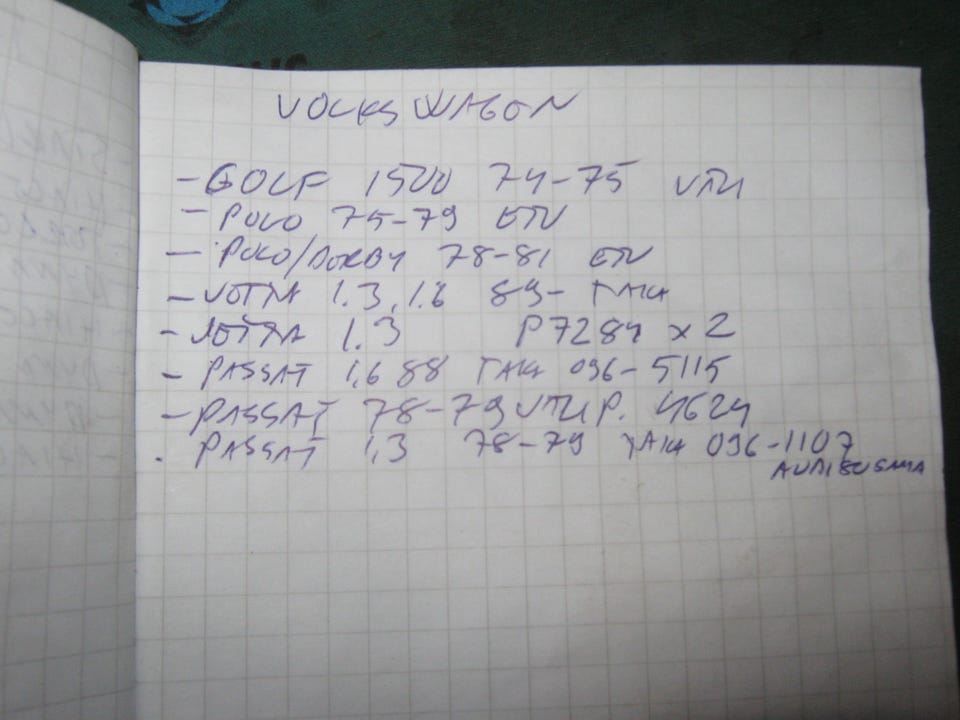 VOLKSWAGON
- GOLF 1500 74-75
- POLO 75-79 ETU
- POLO/DERBY 78-81 ETU
- JETTA 1.3, 1.6 89- TAKA
- JETTA 1.3 P7284 x 2
- PASSAT 1,6 88 TAKA 096-5115
- PASSAT 78-79 P. 4624
. PASSAT 1,3 78-79 TAKA 096-1107
AUDI80 SAMA